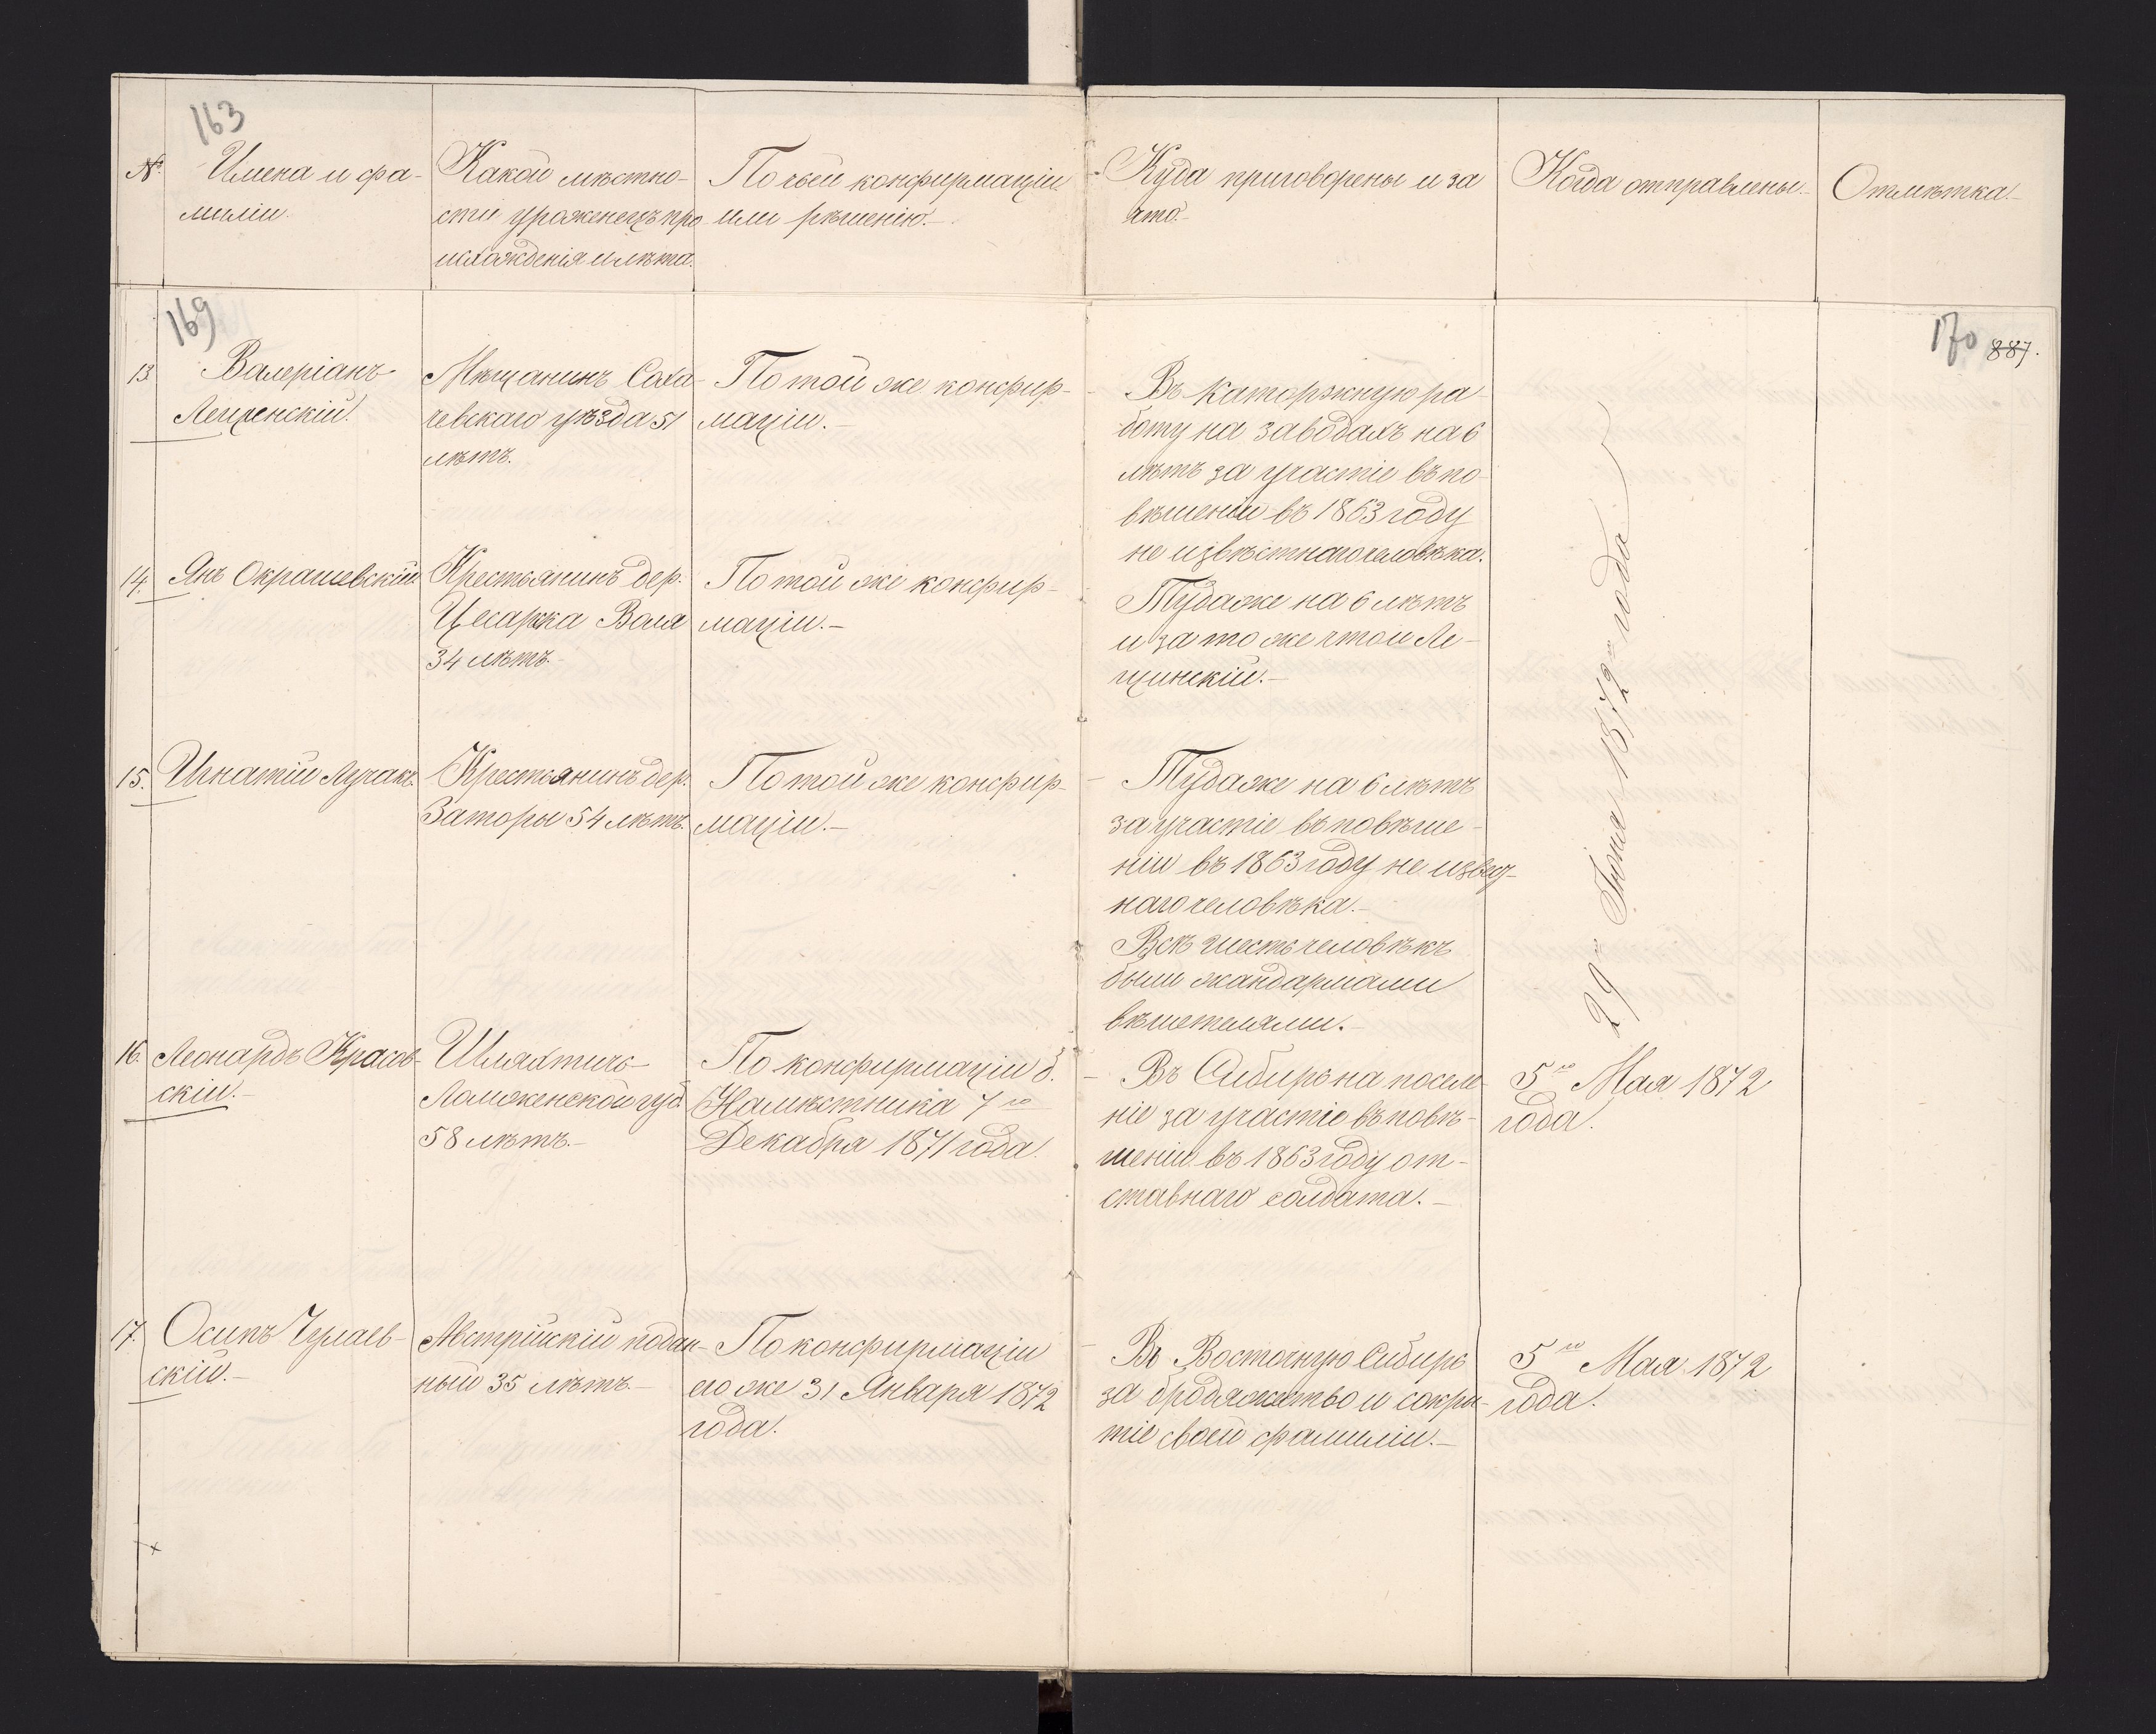 163
№ Имена и фа-
миліи.
Какой мѣстно-
сти уроженецъ про
исхожденія и лѣта.
По чьей конфирмаціи
или рѣшенію.-
Куда приговорены и за
что.-
Когда отправлены.-
Отмѣтка.-
169
170 887.
13. Валеріанъ
Лещенскій.
Мѣщанинъ Соха-
чевскаго уѣзда 51
лѣтъ.
По той же конфир-
маціи.-
Въ каторжную ра-
боту на заводахъ на 6
лѣтъ за участіе въ по-
вѣшеніи въ 1863 году
не извѣстнаго человѣка.
29го Іюня 1872го года
14. Янъ Окрашевскій
Крестьянинъ дер.
Цесарка Воля
34 лѣтъ.-
По той же конфир-
маціи.-
Туда же на 6 лѣтъ
и за то же что и Ле-
щинскій.-
15. Игнатій Лучакъ.
Крестьянинъ дер.
Заторы 54 лѣтъ.
По той же конфир-
маціи.-
Туда же на 6 лѣтъ
за участіе въ повѣше-
ніи въ 1863 году не извѣст-
наго человѣка.-
Всѣ шесть человѣкъ
были жандармами
вѣшателями.-
16. Леонардъ Красов-
скій.-
Шляхтичъ
Ломженской губ.
58 лѣтъ.-
По конфирмаціи б.
Намѣстника 7го
Декабря 1871 года.
Въ Сибирь на поселе-
ніе за участіе въ повѣ-
шеніи въ 1863 году от-
ставнаго солдата.-
5го Мая 1872
года.
17. Осипъ Чулаев-
скій.-
Австрійскій подан-
ный 35 лѣтъ.-
По конфирмаціи
его же 31 Января 1872
года.
Въ Восточную Сибирь
за бродяжество и сокры-
тіе своей фамиліи.-
5го Мая 1872
года.